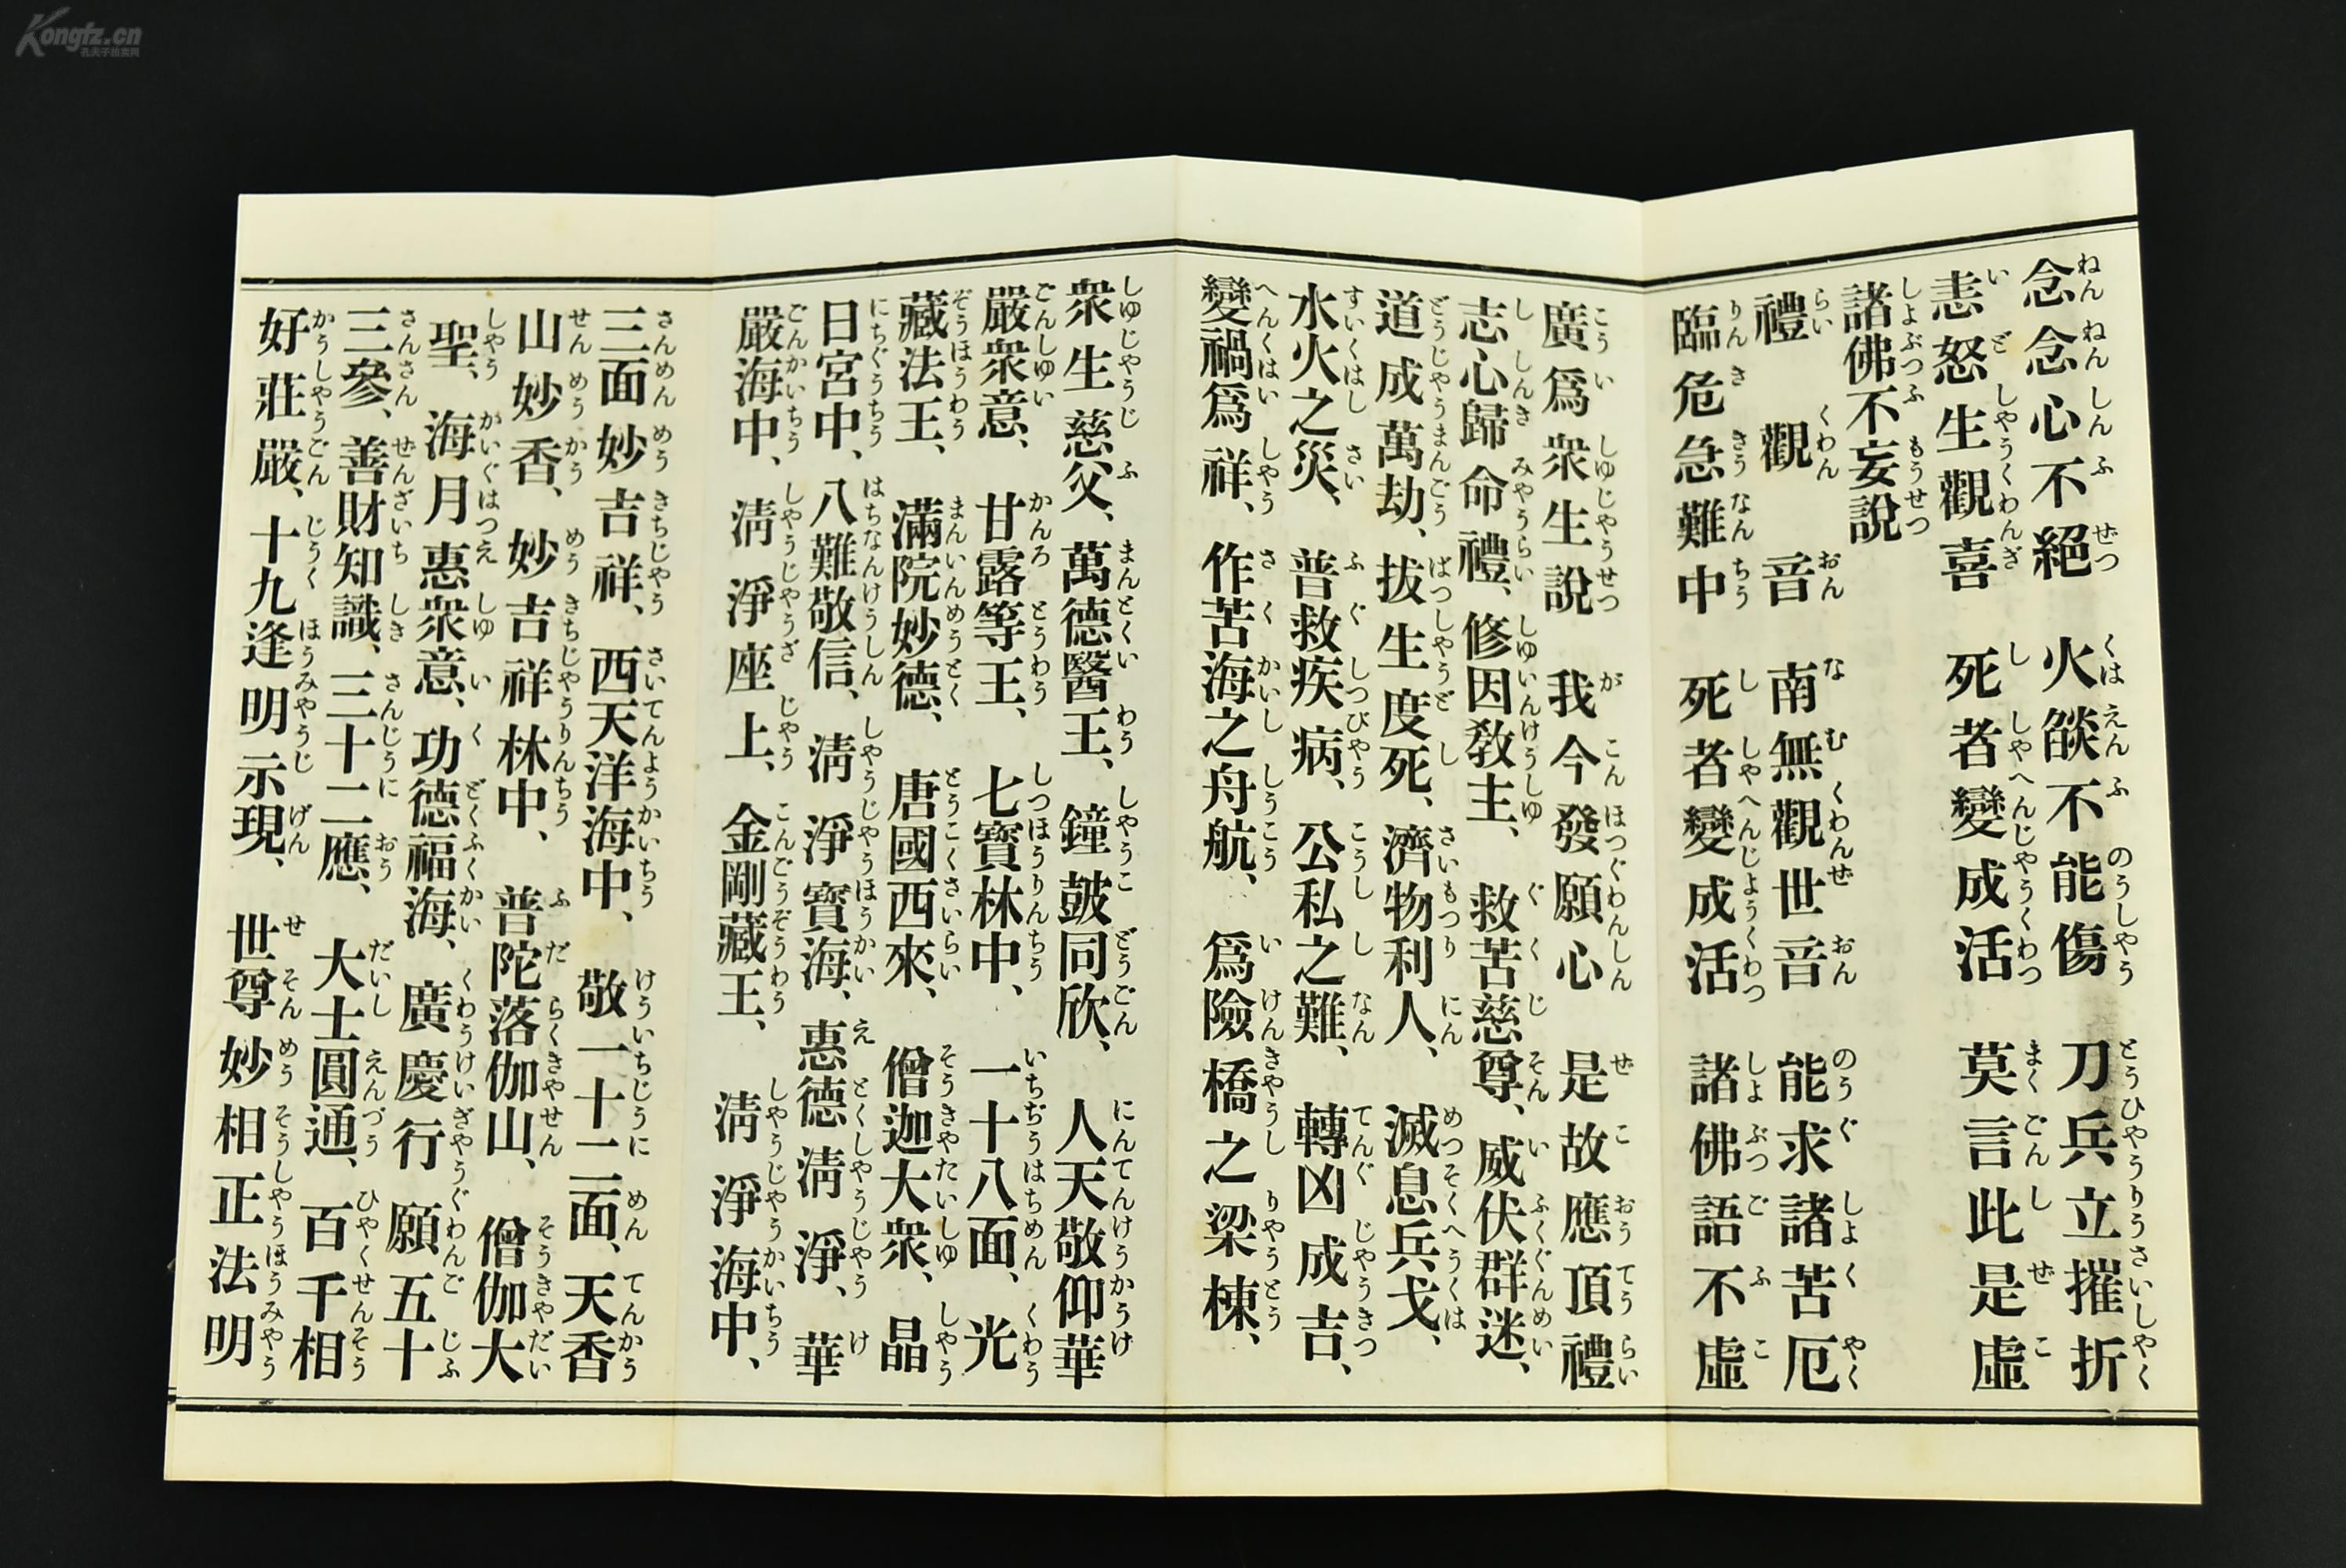 念念心不絕 火燄不能傷 刀兵立摧折
恚怒生觀喜 死者變成活 莫言此是虛
諸佛不妄說
禮觀音 南無觀世音 能求諸苦厄
臨危急難中 死者變成活 諸佛語不虛
廣爲衆生說 我今發願心 是故應頂禮
志心歸命禮、修因教主、救苦慈尊、威伏群迷、
道成萬劫、拔生度死、濟物利人、滅息兵戈、
水火之災、普救疾病、公私之難、轉凶成吉、
變禍爲祥、作苦海之舟航、爲險橋之梁棟、
衆生慈父、萬德醫王、鐘皷同欣、人天敬仰華
嚴衆意、甘露等王、七寶林中、一十八面、光
藏法王、滿院妙德、唐國西來、僧迦大衆、晶
日宮中、八難敬信、淸淨寶海、惠德淸淨、華
嚴海中、淸淨座上、金剛藏王、淸淨海中、
三面妙吉祥、西天洋海中、敬一十二面、天香
山妙香、妙吉祥林中、普陀落伽山、僧伽大
聖、海月惠衆意、功德福海、廣慶行願五十
三參、善財知識、三十二應、大士圓通、百千相
好莊嚴、十九逢明示現、世尊妙相正法明
Kongfz.cn
孔夫子拍卖网